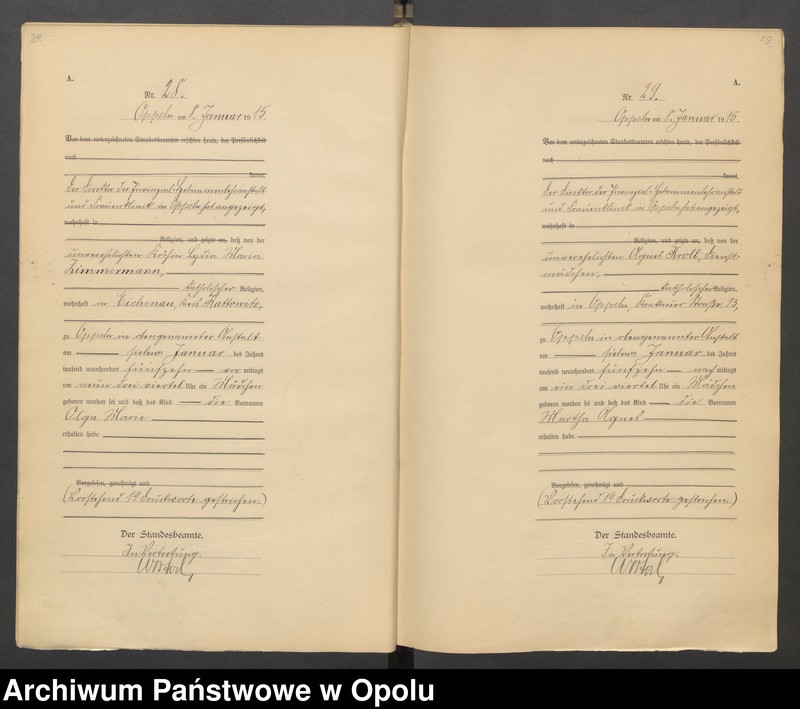 28
A.
Nr. 28.
Oppeln am 8. Januar 1915
Vor dem unterzeichneten Standesbeamten erschien heute, der Persönlichkeit
nach
kannt,
Der Direktor der Provinzial-Hebammenlehranstalt
und Frauenklinik in Oppeln hat angezeigt,
wohnhaft in
Religion, und zeigte an, daß von der
unverehelichten Köchin Lydia Maria
Zimmermann,
katholischer Religion,
wohnhaft in Eichenau, Kreis Kattowitz,
zu Oppeln in obengenannter Anstalt
am sieben Januar des Jahres
tausend neunhundert fünfzehn vor mittags
um neun drei viertel Uhr ein Mädchen
geboren worden sei und daß das Kind die Vornamen
Olga Marie
erhalten habe.
Vorgelesen, genehmigt und
(Vorstehend 19 Druckworte gestrichen.)
Der Standesbeamte.
In Vertretung.
29
A.
Nr. 29.
Oppeln am 8. Januar 1915
Vor dem unterzeichneten Standesbeamten erschien heute, der Persönlichkeit
nach
kannt,
Der Direktor der Provinzial-Hebammenlehranstalt
und Frauenklinik in Oppeln hat angezeigt,
wohnhaft in
Religion, und zeigte an, daß von der
unverehelichten Agnes Kroll, Dienst-
mädchen,
katholischer Religion,
wohnhaft in Oppeln, Krakauer Straße 13,
zu Oppeln in obengenannter Anstalt
am sieben Januar des Jahres
tausend neunhundert fünfzehn nach mittags
um ein drei viertel Uhr ein Mädchen
geboren worden sei und daß das Kind die Vornamen
Martha Agnes
erhalten habe.
Vorgelesen, genehmigt und
(Vorstehend 19 Druckworte gestrichen.)
Der Standesbeamte.
In Vertretung.
Archiwum Państwowe w Opolu